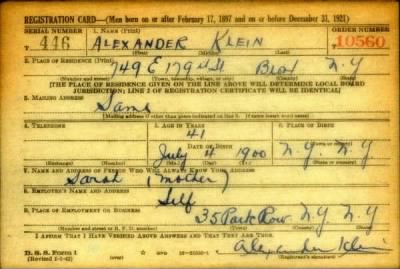 REGISTRATION CARD—(Men born on or after February 17, 1897 and on or before December 31, 1921)
SERIAL NUMBER 1. NAME (Print) ORDER NUMBER
446 ALEXANDER KLEIN 10560
(First) (Middle) (Last)
2. PLACE OF RESIDENCE (Print)
749 E 179 St N.Y
(Number and street) (Town, township, village, or city) (County) (State)
[THE PLACE OF RESIDENCE GIVEN ON THE LINE ABOVE WILL DETERMINE LOCAL BOARD
JURISDICTION; LINE 2 OF REGISTRATION CERTIFICATE WILL BE IDENTICAL]
3. MAILING ADDRESS
Same
(Mailing address if other than place indicated on line 2. If same insert word same)
4. TELEPHONE 5. AGE IN YEARS 6. PLACE OF BIRTH
41
DATE OF BIRTH
July 4 1900 N.Y. N.Y
(Exchange) (Number) (Mo.) (Day) (Yr.) (Town or county) (State or country)
7. NAME AND ADDRESS OF PERSON WHO WILL ALWAYS KNOW YOUR ADDRESS
Sarah (Mother)
8. EMPLOYER'S NAME AND ADDRESS
Self
9. PLACE OF EMPLOYMENT OR BUSINESS
35 Park Row N.Y N.Y
(Number and street or R. F. D. number) (Town) (County) (State)
I AFFIRM THAT I HAVE VERIFIED ABOVE ANSWERS AND THAT THEY ARE TRUE.
D. S. S. Form 1
Alexander Klein